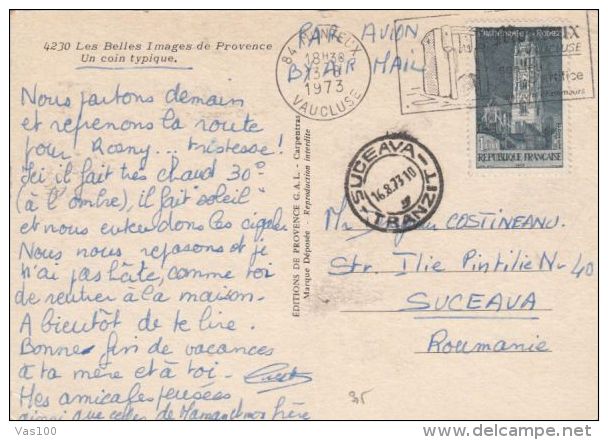 4230 Les Belles Images de Provence
Un coin typique.
Nous partons demain
et reprenons la route
pour Rosny ... tristesse!
Ici il fait très chaud 30°
(à l'ombre), il fait "soleil"
et nous entendons les cigales
Nous nous reposons et je
n'ai pas hâte, comme toi
de rentrer à la maison.
A bientôt de te lire.
Bonne fin de vacances
à ta mère et à toi.
Mes amicales pensées
ainsi que celles de Maman et mon frère
EDITIONS DE PROVENCE G.A.L. - Carpentras
Marque Déposée - Reproduction interdite
PAR AVION
BY AIR MAIL
84
18H30
1973
VAUCLUSE
Cathédrale Rodez
REPUBLIQUE FRANÇAISE
VAUCLUSE
SUCEAVA
16.8.73.10
TRANZIT
COSTINEANU
Str. Ilie Pintilie Nr 40
SUCEAVA
Roumanie
35
Vas100
delcampe.net